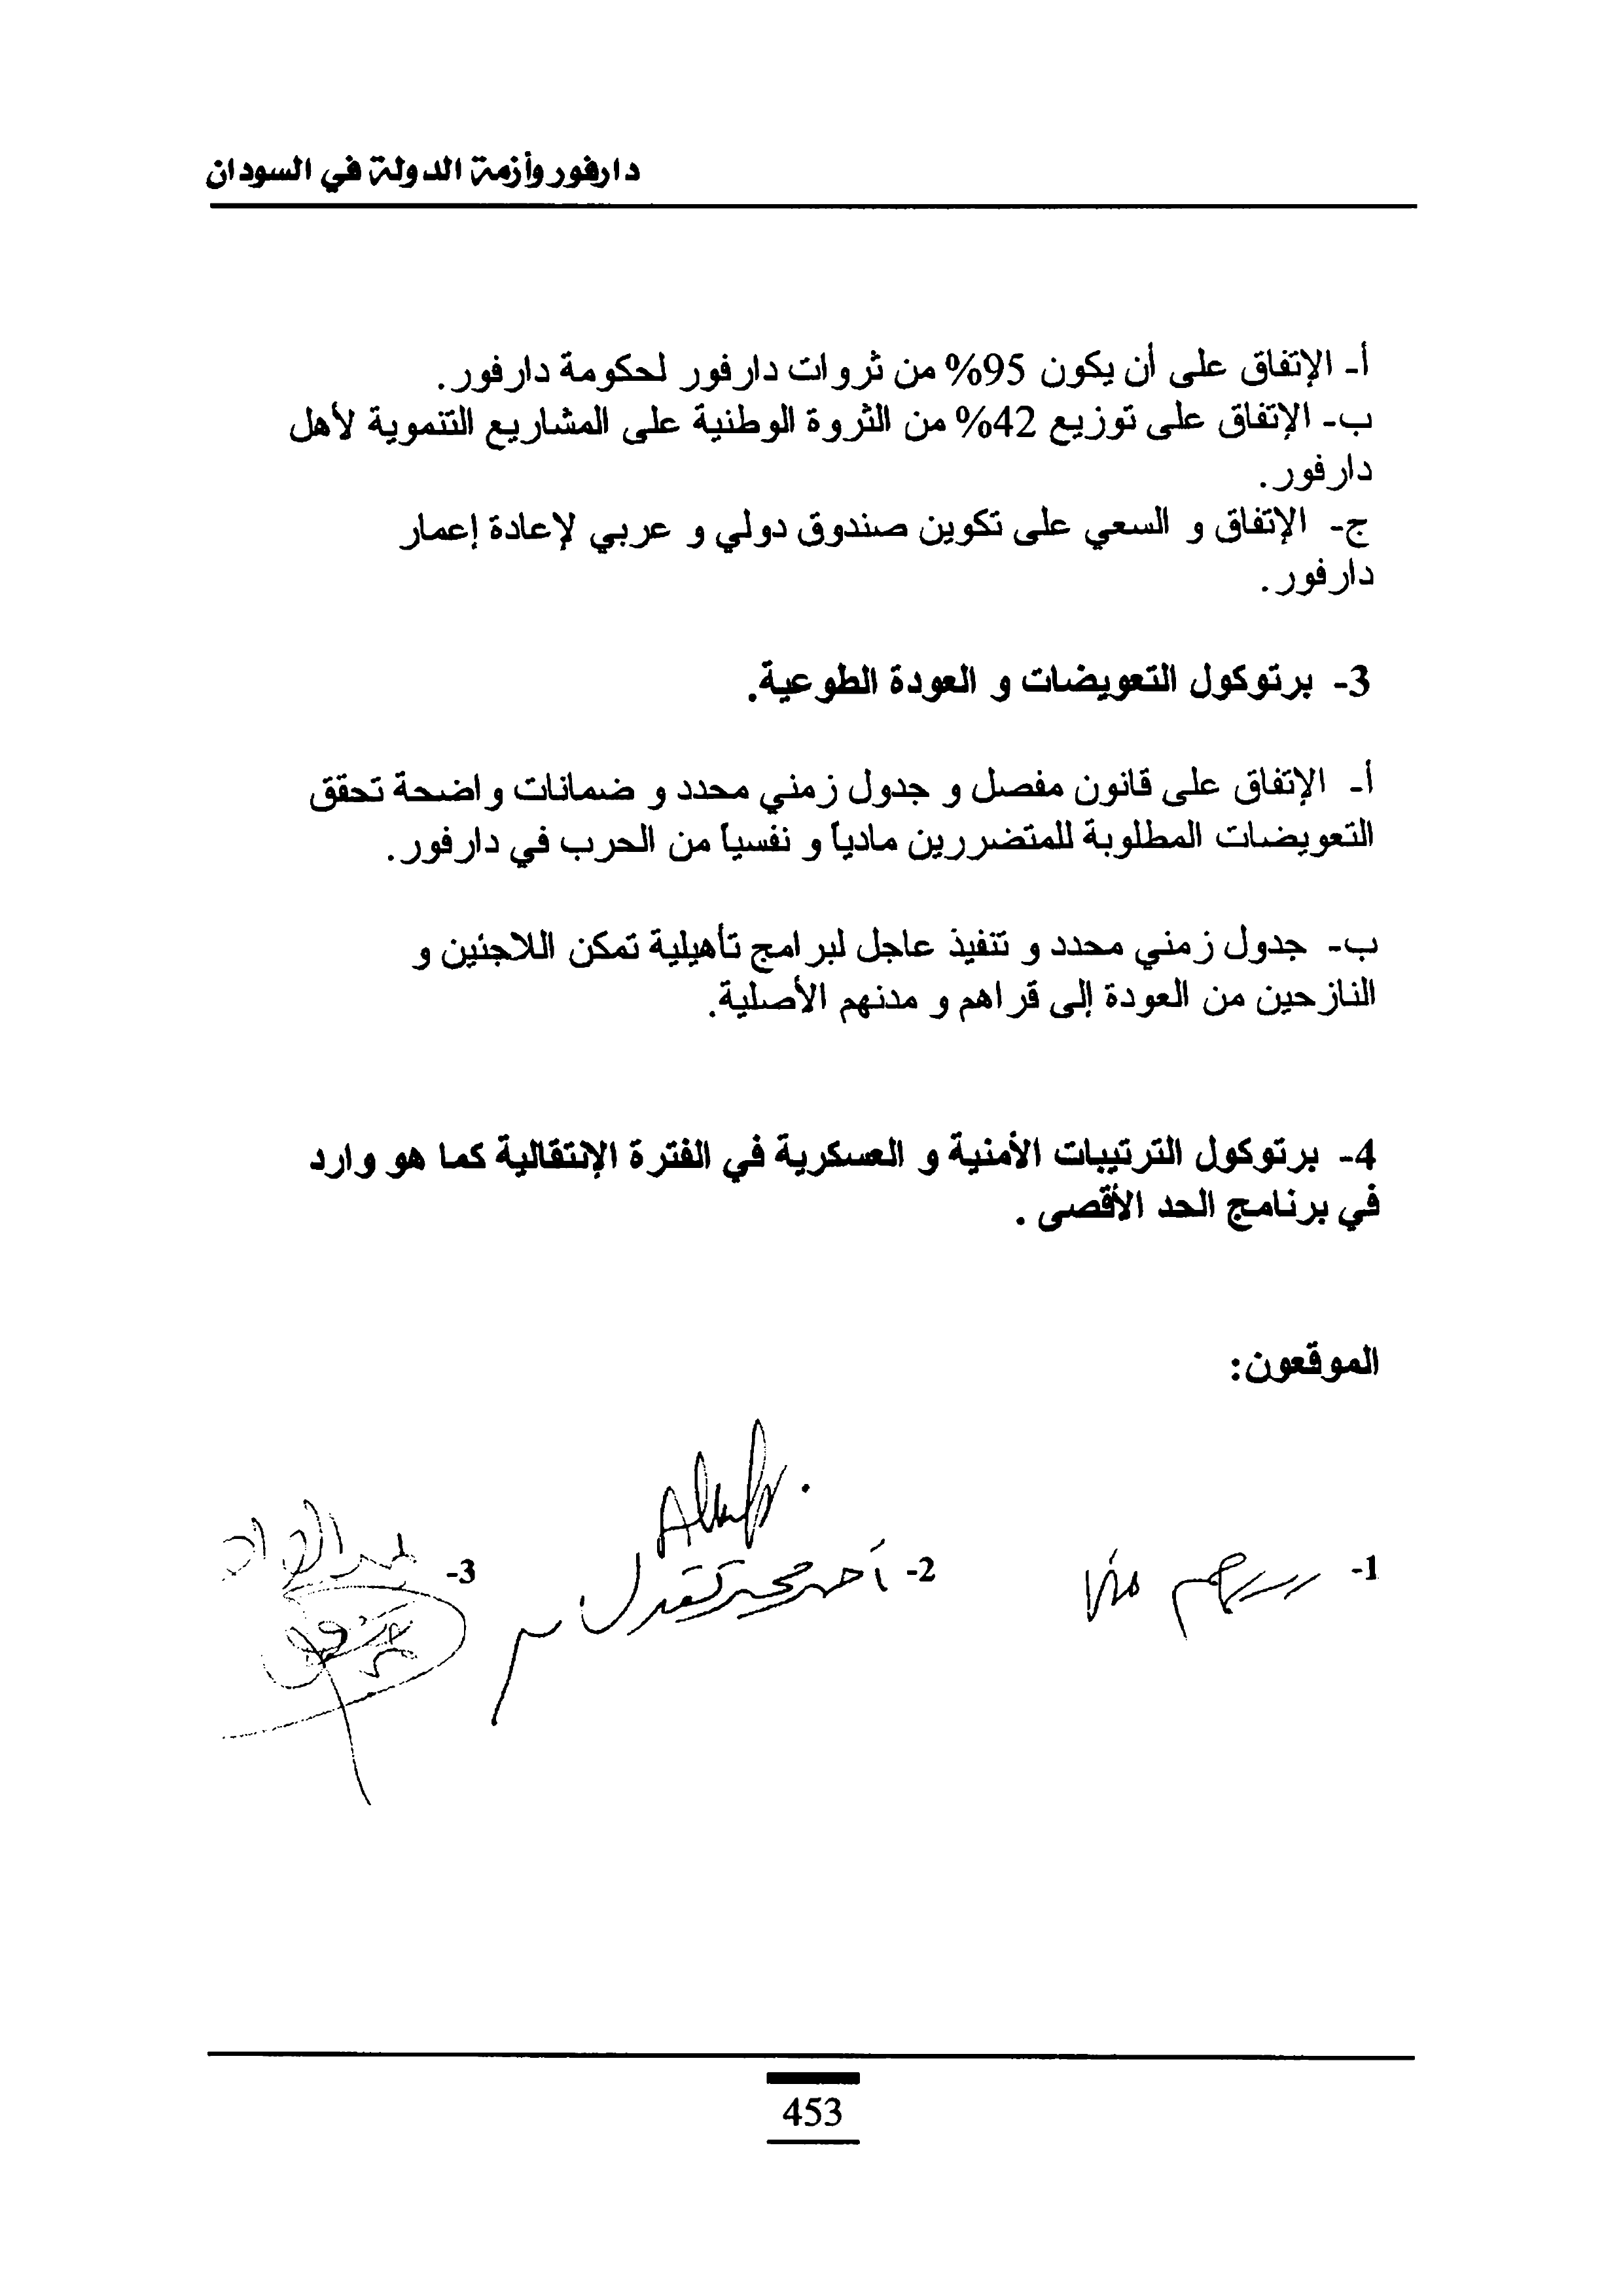 دارفور وأزمة الدولة في السودان
أ- الإتفاق على أن يكون 95% من ثروات دارفور لحكومة دارفور.
ب- الإتفاق على توزيع 42% من الثروة الوطنية على المشاريع التنموية لأهل
دارفور.
ج- الإتفاق و السعي على تكوين صندوق دولي و عربي لإعادة إعمار
دارفور.
3- برتوكول التعويضات و العودة الطوعية.
أ- الإتفاق على قانون مفصل و جدول زمني محدد و ضمانات واضحة تحقق
التعويضات المطلوبة للمتضررين مادياً و نفسياً من الحرب في دارفور.
ب- جدول زمني محدد و تنفيذ عاجل لبرامج تأهيلية تمكن اللاجئين و
النازحين من العودة إلى قراهم و مدنهم الأصلية.
4- برتوكول الترتيبات الأمنية و العسكرية في الفترة الإنتقالية كما هو وارد
في برنامج الحد الأقصى .
الموقعون:
1- 2- أحمد محمد 3-
453